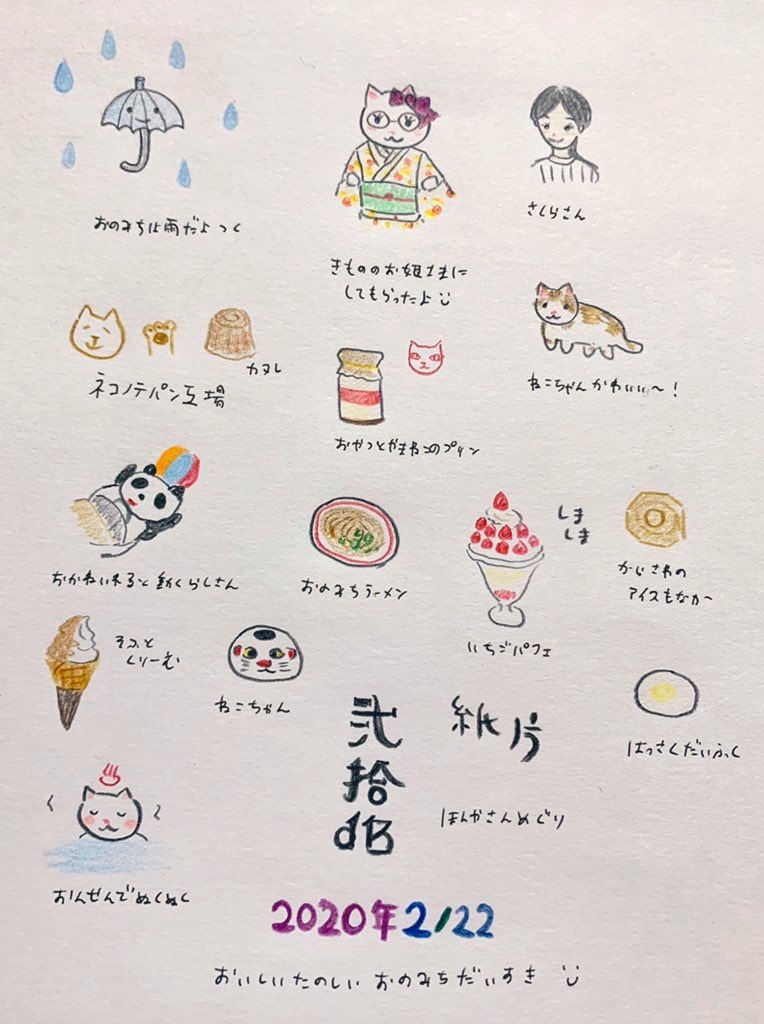 おのみちは雨だよっ
きもののお姫さまに
してもらったよ
さくらさん
カヌレ
ネコノテパン工場
おやつとやまねこのプリン
ねこちゃんかわいい〜!
おかねいれると動くらしさん
おのみちラーメン
しま
しま
いちごパフェ
からさわの
アイスもなかー
そふと
くりーむ
ねこちゃん
はっさくだいふく
弐
拾
dB
紙片
ほんやさんめぐり
おんせんでぬくぬく
2020年2/22
おいしいたのしい おのみちだいすき